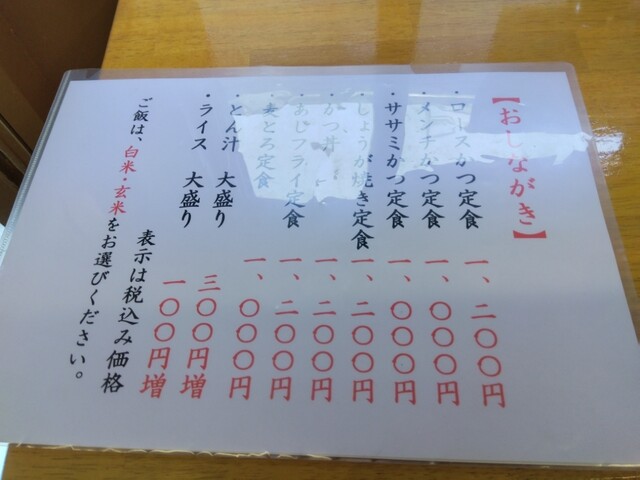 【おしながき】
・ロースかつ定食 一、二〇〇円
・メンチかつ定食 一、〇〇〇円
・ササミかつ定食 一、〇〇〇円
・しょうが焼き定食 一、二〇〇円
・かつ丼 一、二〇〇円
・あじフライ定食 一、二〇〇円
・麦とろ定食 一、〇〇〇円
・とん汁 大盛り 三〇〇円増
・ライス 大盛り 一〇〇円増
表示は税込み価格
ご飯は、白米・玄米をお選びください。